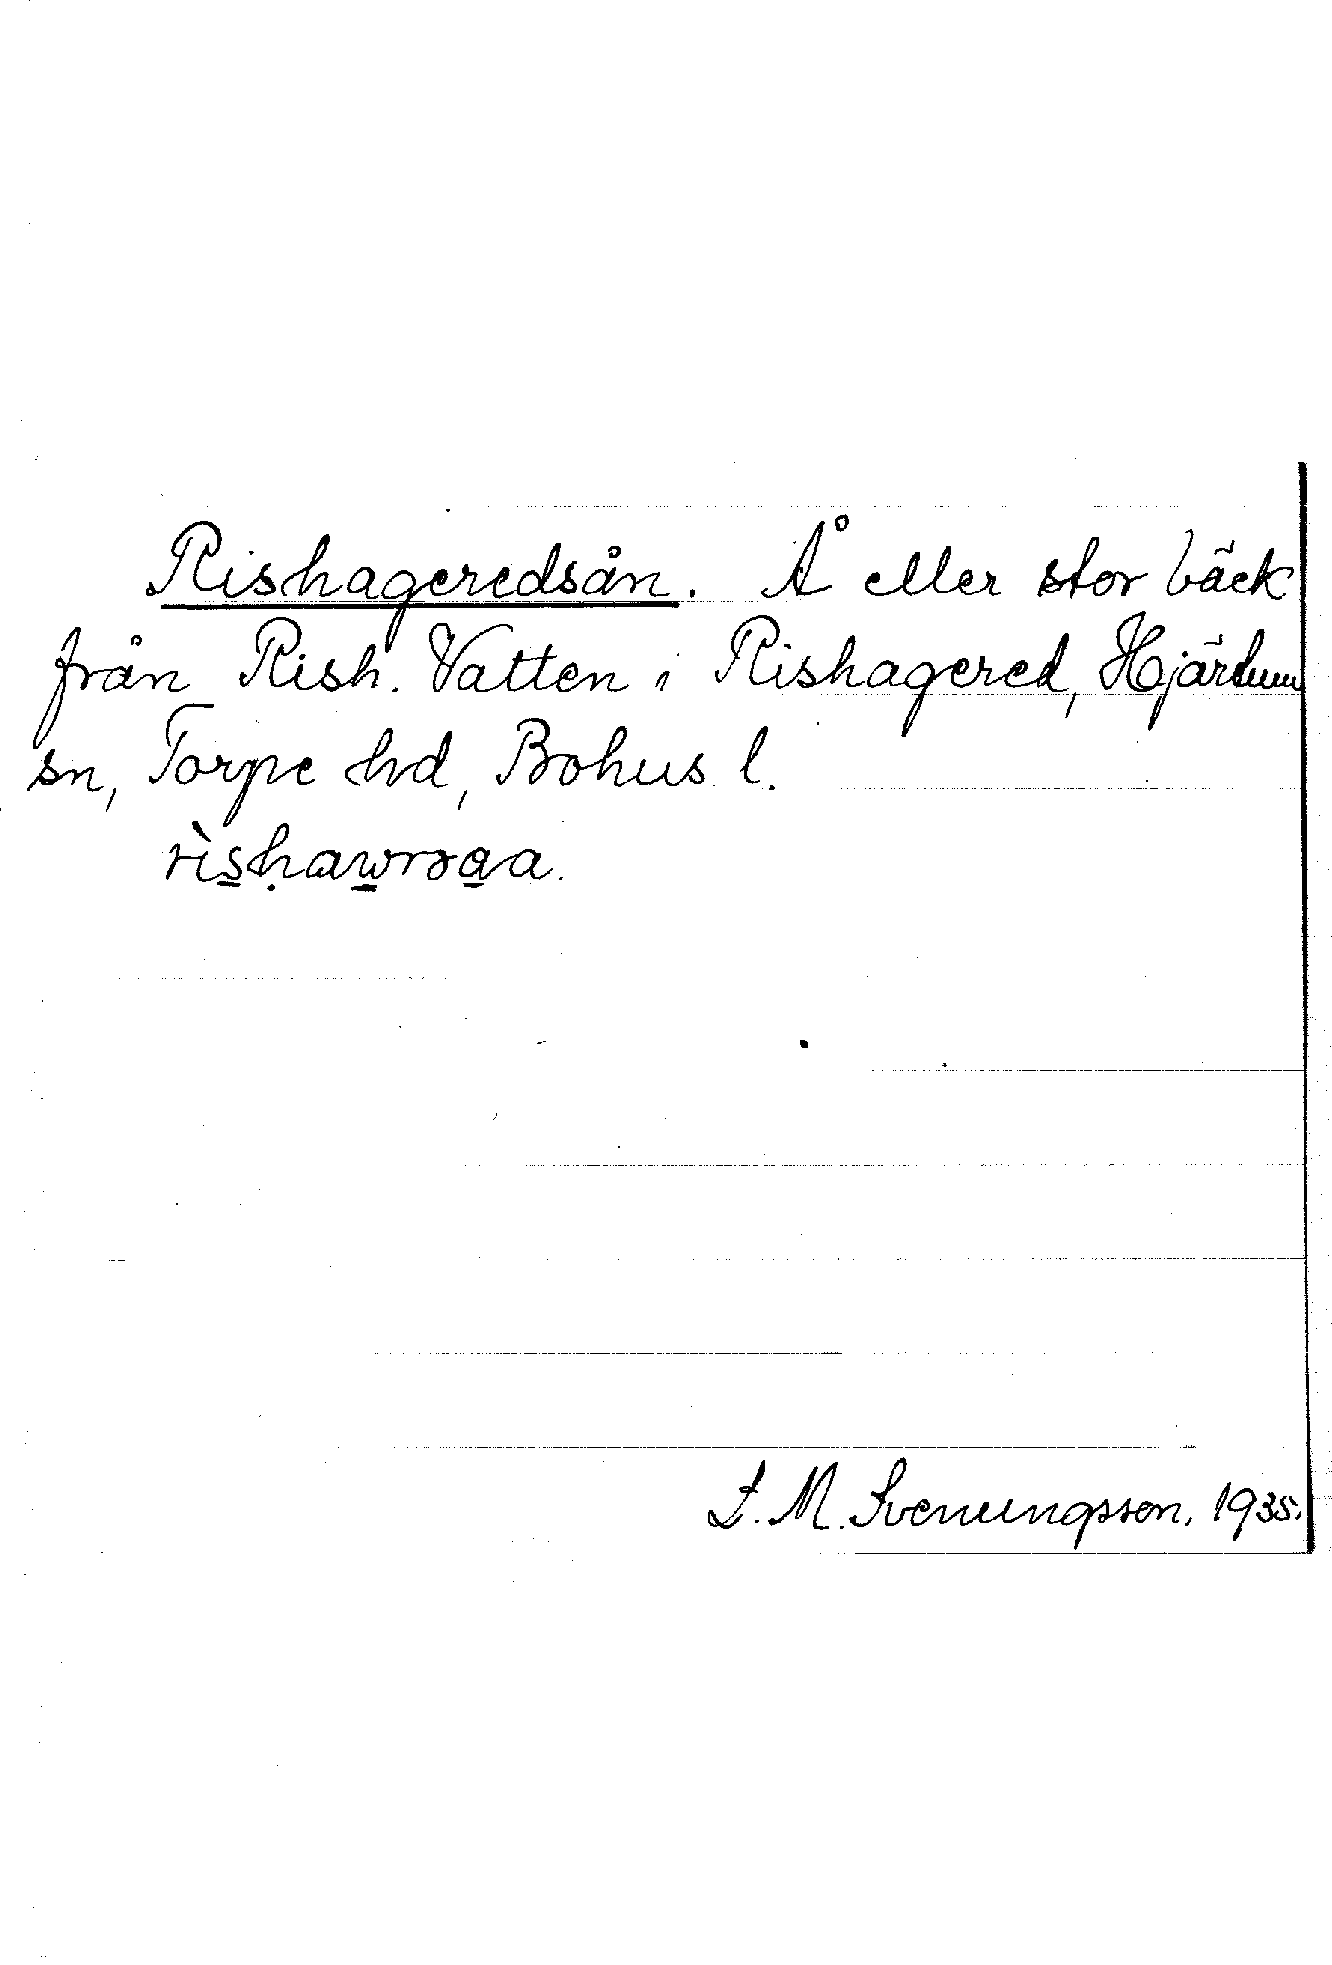 Rishageredsån. Å eller stor bäck
från Rish. Vatten i Rishagered, Hjärtum
sn, Torpe hd, Bohus l.
J. M. Svenungsson, 1935.